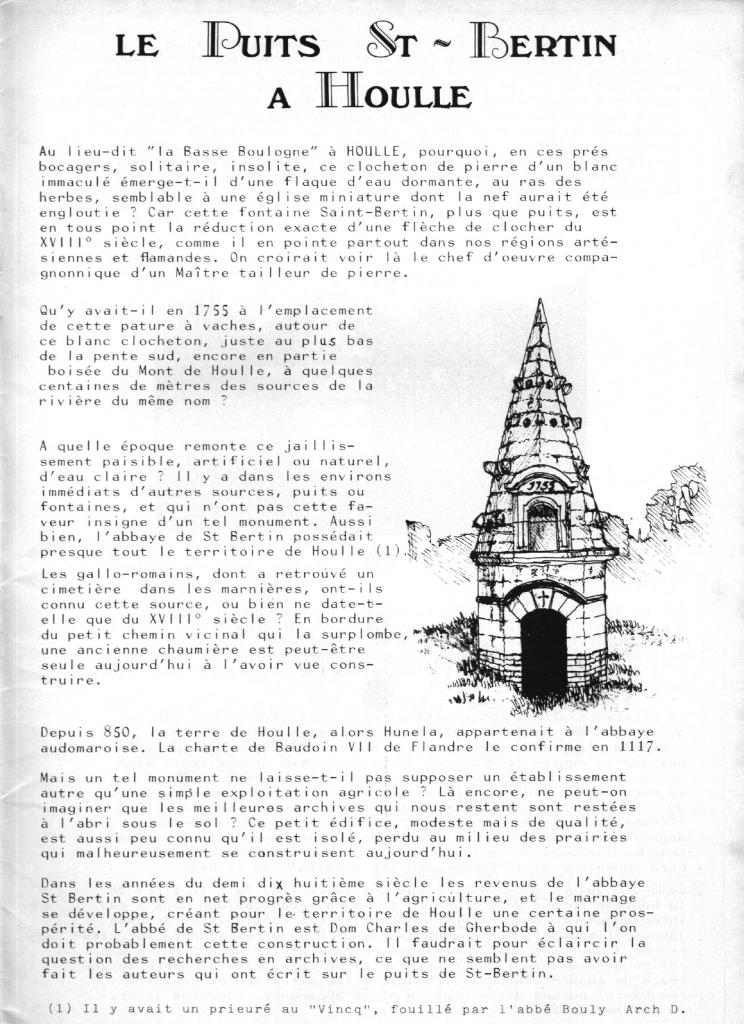 LE PUITS ST ~ BERTIN
A HOULLE
Au lieu-dit "la Basse Boulogne" à HOULLE, pourquoi, en ces prés
bocagers, solitaire, insolite, ce clocheton de pierre d'un blanc
immaculé émerge-t-il d'une flaque d'eau dormante, au ras des
herbes, semblable à une église miniature dont la nef aurait été
engloutie ? Car cette fontaine Saint-Bertin, plus que puits, est
en tous point la réduction exacte d'une flèche de clocher du
XVIII° siècle, comme il en pointe partout dans nos régions arté-
siennes et flamandes. On croirait voir là le chef d'oeuvre compa-
gnonnique d'un Maître tailleur de pierre.
Qu'y avait-il en 1755 à l'emplacement
de cette pature à vaches, autour de
ce blanc clocheton, juste au plus bas
de la pente sud, encore en partie
boisée du Mont de Houlle, à quelques
centaines de mètres des sources de la
rivière du même nom ?
A quelle époque remonte ce jaillis-
sement paisible, artificiel ou naturel,
d'eau claire ? Il y a dans les environs
immédiats d'autres sources, puits ou
fontaines, et qui n'ont pas cette fa-
veur insigne d'un tel monument. Aussi
bien, l'abbaye de St Bertin possédait
presque tout le territoire de Houlle (1).
Les gallo-romains, dont a retrouvé un
cimetière dans les marnières, ont-ils
connu cette source, ou bien ne date-t-
elle que du XVIII° siècle ? En bordure
du petit chemin vicinal qui la surplombe,
une ancienne chaumière est peut-être
seule aujourd'hui à l'avoir vue cons-
truire.
1755
Depuis 850, la terre de Houlle, alors Hunela, appartenait à l'abbaye
audomaroise. La charte de Baudoin VII de Flandre le confirme en 1117.
Mais un tel monument ne laisse-t-il pas supposer un établissement
autre qu'une simple exploitation agricole ? Là encore, ne peut-on
imaginer que les meilleures archives qui nous restent sont restées
à l'abri sous le sol ? Ce petit édifice, modeste mais de qualité,
est aussi peu connu qu'il est isolé, perdu au milieu des prairies
qui malheureusement se construisent aujourd'hui.
Dans les années du demi dix huitième siècle les revenus de l'abbaye
St Bertin sont en net progrès grâce à l'agriculture, et le marnage
se développe, créant pour le territoire de Houlle une certaine pros-
périté. L'abbé de St Bertin est Dom Charles de Gherbode à qui l'on
doit probablement cette construction. Il faudrait pour éclaircir la
question des recherches en archives, ce que ne semblent pas avoir
fait les auteurs qui ont écrit sur le puits de St-Bertin.
(1) Il y avait un prieuré au "Vincq", fouillé par l'abbé Bouly Arch D.